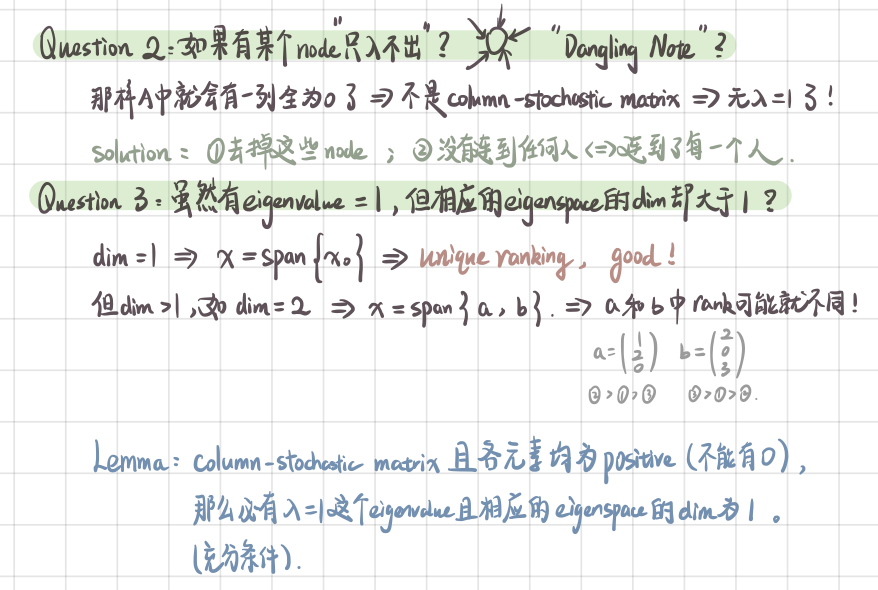 Question 2:如果有某个node"只入不出"? "Dangling Note"?
那样A中就会有一列全为0了 ⇒ 不是column-stochastic matrix ⇒ 无λ=1了!
solution: ①去掉这些node ; ②没有连到任何人 <=>连到了每一个人.
Question 3:虽然有eigenvalue = 1,但相应的eigenspace的dim却大于1?
dim=1 ⇒ x=span{x₀} ⇒ unique ranking, good!
但dim>1,如 dim=2 ⇒ x=span{a,b}. ⇒ a和b中rank可能就不同!
a=(1 2 0) b=(2 0 3)
②>①>③ ③>①>②.
Lemma: column-stochastic matrix 且各元素均为positive (不能有0),
那么必有λ=1这个eigenvalue且相应的eigenspace的dim为1。
(充分条件).